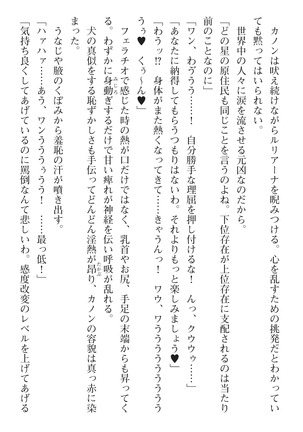 カノンは吠え続けながらルリアーナを睨みつける。心を乱すための挑発だとわかってい
ても黙ってはいられない。
世界中の人々に涙を流させる元凶なのだから。
「どの星の原住民も同じことを言うのよね。下位存在が上位存在に支配されるのは当たり
前のことなのに」
「ワン、わヴう……！　自分勝手な理屈を押し付けるな！　んっ、クウゥゥ……」
「あなたに納得してもらうつもりはないわ。それよりもっと楽しみましょう♥」
「わうッ!?　身体がまた熱くなってきて……きゃうんっ！　ワウ、ワうううううううう
うぅ♥　くぅーん♥」
フェラチオで感じた時の熱が口だけではなく、乳首やお尻、手足の末端からも昇ってく
る。わずかに身動ぎするだけで甘い痺れが神経を伝い呼吸が乱れる。
犬の真似をする恥ずかしさも手伝ってどんどん淫熱が昂り、カノンの容貌は真っ赤に染
まった。
うなじや腋のくぼみから羞恥の汗が噴き出す。
「ハァハァ……あう、ワンううぅぅう！　……最っ低！」
「気持ち良くしてあげているのに罵倒なんて悲しいわ。感度改変のレベルを上げてあげる